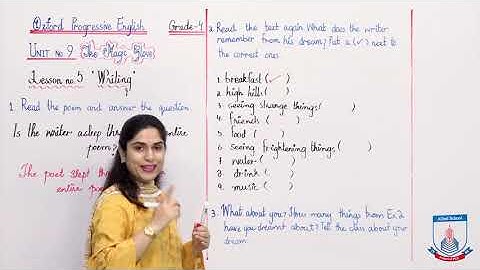 Oxford Progressive English
Grade-4
Unit No 9 The Magic
Lesson no. 5 'Writing'
1. Read the poem and answer the question.
Is the writer asleep entire
poem?
The poet slept
entire
2. Read the text again. What does the writer
remember from his dream? Put a (✓) next to
the correct ones
1. breakfast (✓)
2. high hills ( )
3. seeing strange things ( )
4. friends ( )
5. food ( )
6. seeing frightening things ( )
7. water ( )
8. drink ( )
9. music ( )
3. What about you? How many things from Ex.2
have you dreamt about? Tell the class about your
dream.
Allied School